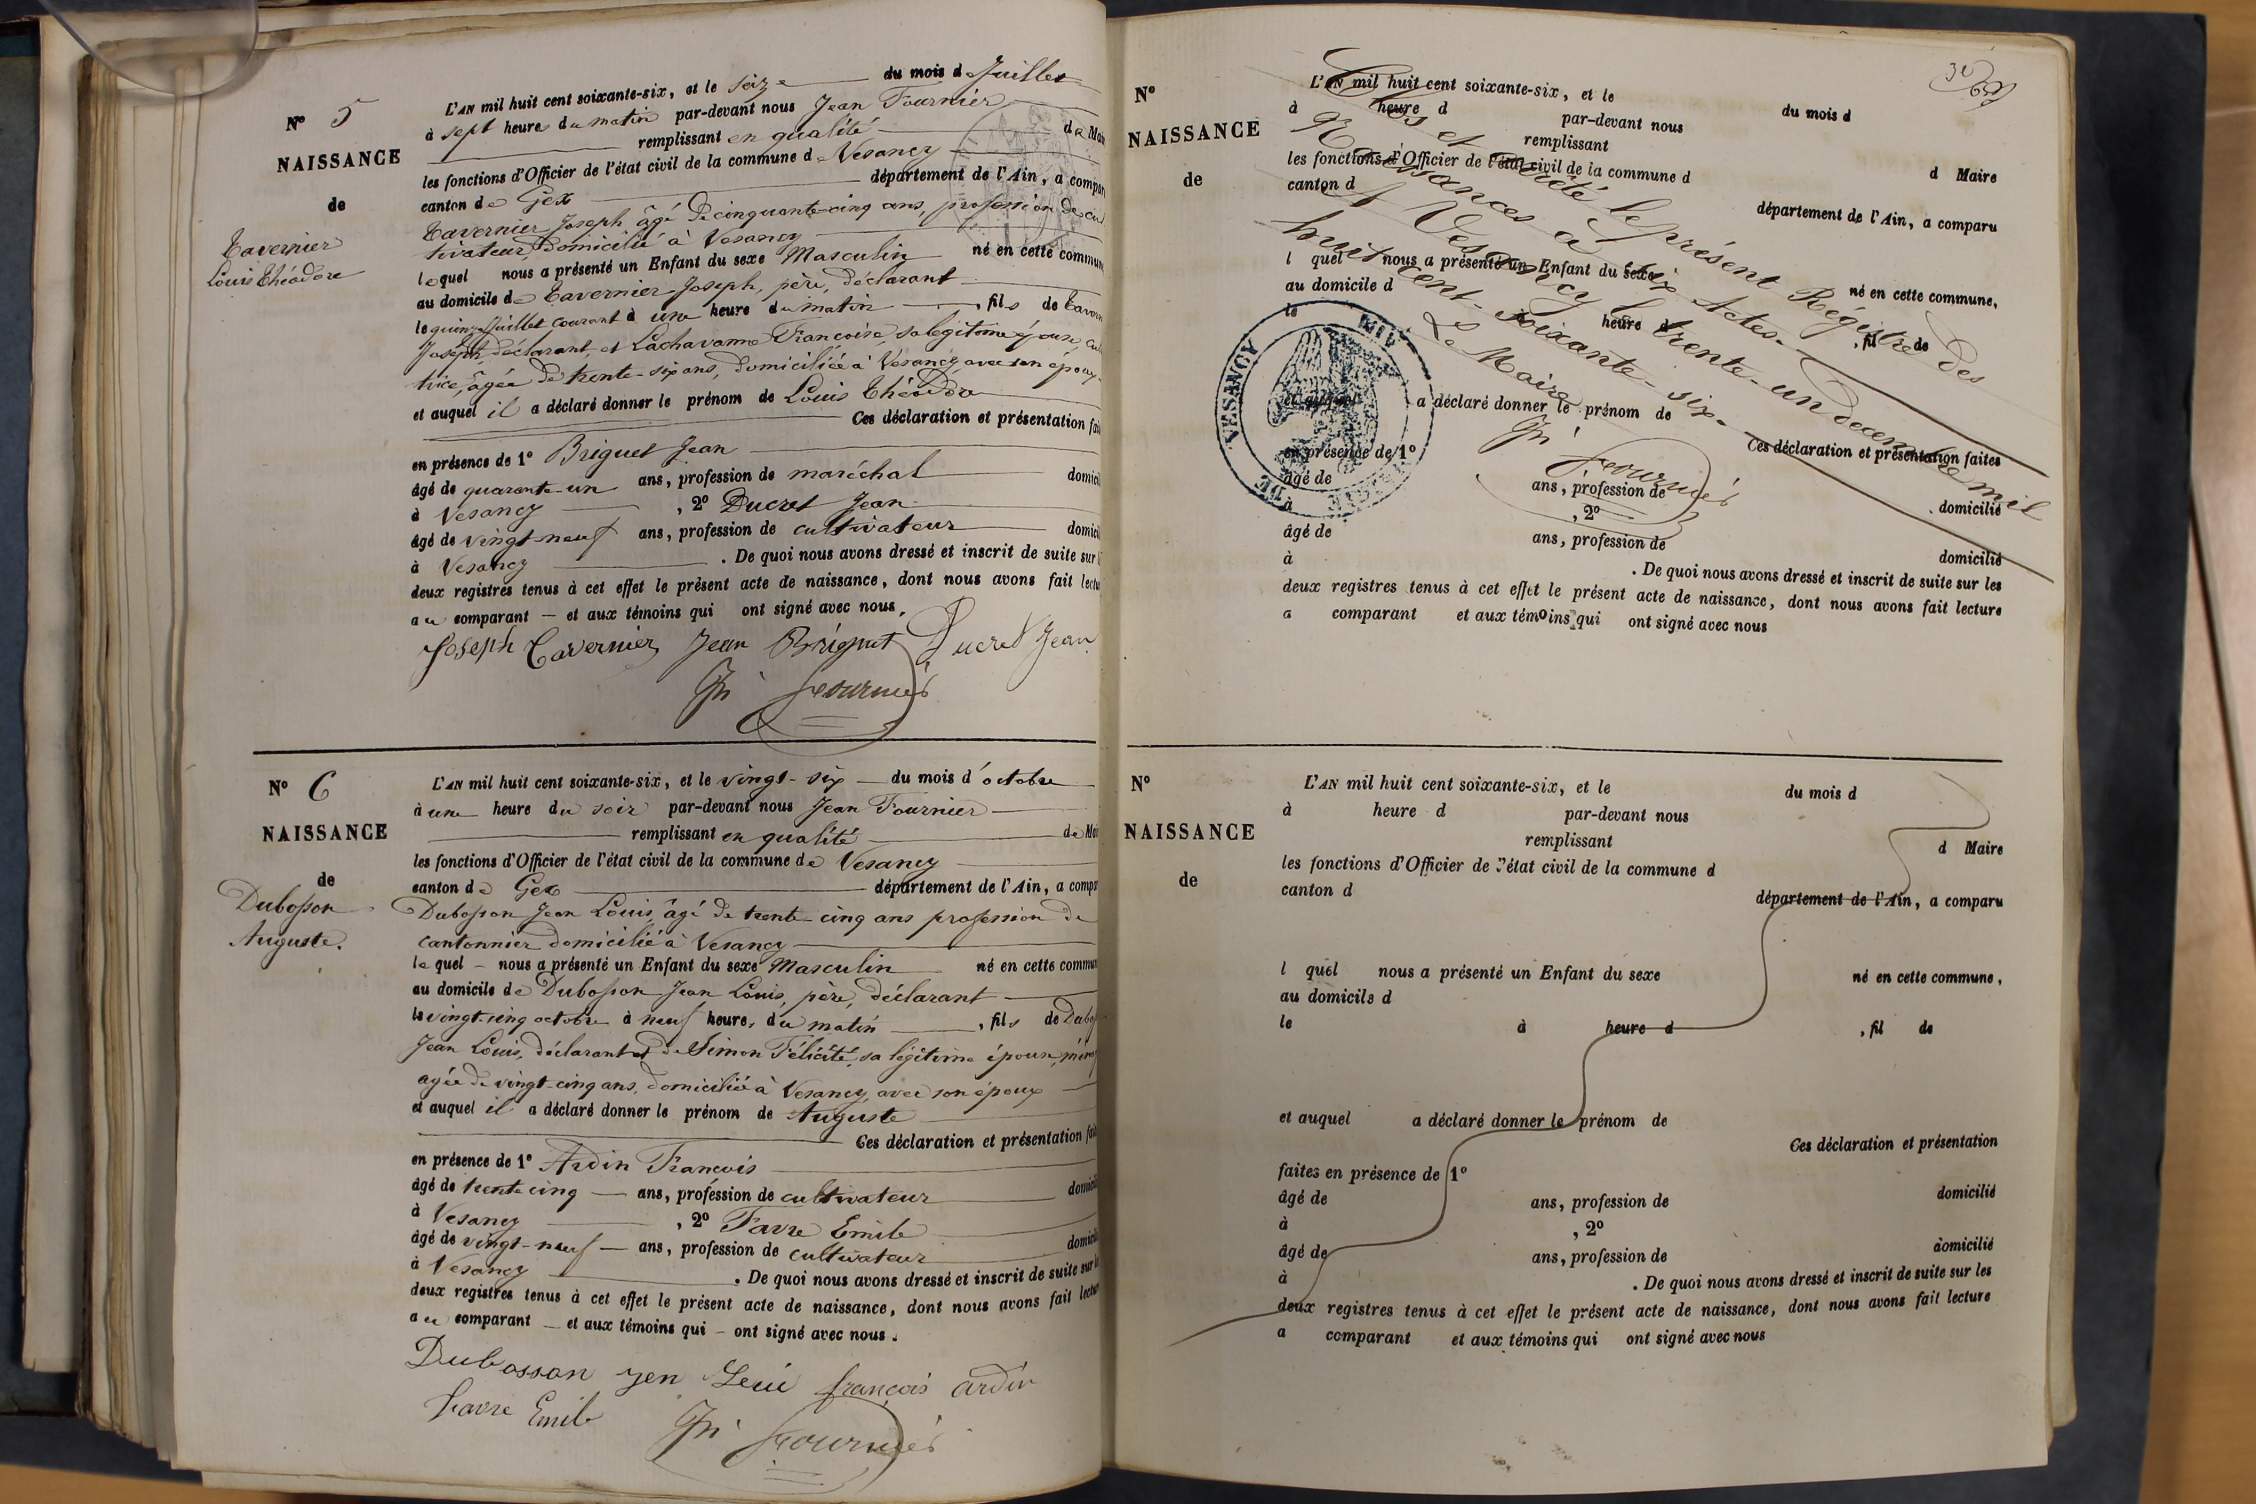 N° 5
NAISSANCE
de
Tavernier
Louis Théodore
L'AN mil huit cent soixante-six, et le seize du mois de Juillet
à sept heures du matin par-devant nous Jean Fournier
remplissant en qualité de Mai
les fonctions d'Officier de l'état civil de la commune de Vesancy
canton de Gex département de l'Ain, a compar
Tavernier Joseph, âgé de cinquante-cinq ans, profession de cul
tivateur, domicilié à Vesancy
lequel nous a présenté un Enfant du sexe Masculin né en cette commune
au domicile de Tavernier Joseph, père, déclarant
le quinze Juillet courant à une heure du matin, fils de Taver
Joseph, déclarant, et Lachavanne Françoise, sa légitime épouse, cul
trice, âgée de trente-six ans, domiciliée à Vesancy, avec son époux
et auquel il a déclaré donner le prénom de Louis Théodore
Ces déclaration et présentation fai
en présence de 1° Briguet Jean
âgé de quarante-un ans, profession de maréchal domicil
à Vesancy, 2° Ducret Jean
âgé de vingt-neuf ans, profession de cultivateur domicil
à Vesancy. De quoi nous avons dressé et inscrit de suite sur l
deux registres tenus à cet effet le présent acte de naissance, dont nous avons fait lectu
au comparant — et aux témoins qui ont signé avec nous.
Joseph Tavernier Jean Briguet Ducret Jean
Jn Fournier
N° 6
NAISSANCE
de
Dubosson
Auguste.
L'AN mil huit cent soixante-six, et le vingt-six du mois d'octobre
à une heure du soir par-devant nous Jean Fournier
remplissant en qualité de Mai
les fonctions d'Officier de l'état civil de la commune de Vesancy
canton de Gex département de l'Ain, a compar
Dubosson Jean Louis, âgé de trente-cinq ans profession de
cantonnier domicilié à Vesancy
lequel — nous a présenté un Enfant du sexe Masculin né en cette commun
au domicile de Dubosson Jean Louis, père, déclarant
le vingt-cinq octobre à neuf heures du matin, fils de Dubos
Jean Louis, déclarant et de Simon Félicité, sa légitime épouse, ménag
agée de vingt-cinq ans, domiciliée à Vesancy, avec son époux
et auquel il a déclaré donner le prénom de Auguste
Ces déclaration et présentation fait
en présence de 1° Ardin François
âgé de trente cinq — ans, profession de cultivateur domicili
à Vesancy, 2° Favre Emile
âgé de vingt-neuf — ans, profession de cultivateur domicili
à Vesancy. De quoi nous avons dressé et inscrit de suite sur le
deux registres tenus à cet effet le présent acte de naissance, dont nous avons fait lectur
au comparant — et aux témoins qui — ont signé avec nous.
Dubosson jen Leui françois ardin
Favre Emile Jn Fournier
N°
NAISSANCE
de
L'AN mil huit cent soixante-six, et le du mois d
à heure d par-devant nous
remplissant d Maire
les fonctions d'Officier de l'état civil de la commune d
canton d département de l'Ain, a comparu
l quel nous a présenté un Enfant du sexe né en cette commune,
au domicile d
le heure d, fil de
et auquel a déclaré donner le prénom de
Ces déclaration et présentation faites
en présence de 1°
âgé de ans, profession de domicilié
à, 2°
âgé de ans, profession de domicilié
à. De quoi nous avons dressé et inscrit de suite sur les
deux registres tenus à cet effet le présent acte de naissance, dont nous avons fait lecture
a comparant et aux témoins qui ont signé avec nous
Clos et arrêté le présent Régistre des
Naissances à six Actes.
A Vesancy le trente-un décembre mil
huit cent-soixante-six.
Le Maire
Jn Fournier
MAIRIE DE VESANCY AIN
N°
NAISSANCE
de
L'AN mil huit cent soixante-six, et le du mois d
à heure d par-devant nous
remplissant d Maire
les fonctions d'Officier de l'état civil de la commune d
canton d département de l'Ain, a comparu
l quel nous a présenté un Enfant du sexe né en cette commune,
au domicile d
le à heure d, fil de
et auquel a déclaré donner le prénom de
Ces déclaration et présentation
faites en présence de 1°
âgé de ans, profession de domicilié
à, 2°
âgé de ans, profession de domicilié
à. De quoi nous avons dressé et inscrit de suite sur les
deux registres tenus à cet effet le présent acte de naissance, dont nous avons fait lecture
a comparant et aux témoins qui ont signé avec nous